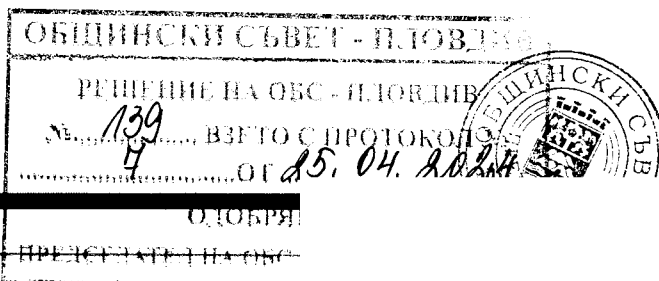 ОБЩИНСКИ СЪВЕТ - ПЛОВДИВ
РЕШЕНИЕ НА ОБС - ПЛОВДИВ
№ 139 ВЗЕТО С ПРОТОКОЛ №
7 ОТ 25. 04. 2024
ОДОБРЯ
ПРЕДСЕДАТЕЛ НА ОБС
ОБЩИНСКИ СЪВ